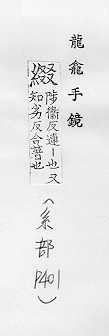 龍龕手鏡
綴
陟衛反連丨也又
知劣反合著也
(糸部
P401)